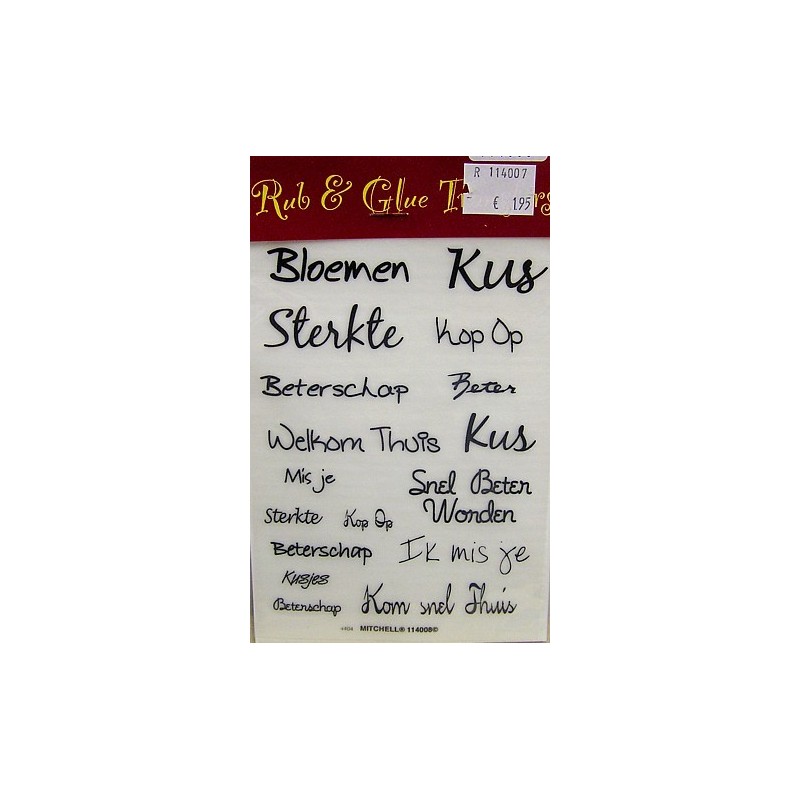 R 114007
€ 1.95
Rub & Glue
Bloemen Kus
Sterkte Kop Op
Beterschap Beter
Welkom Thuis Kus
Mis je Snel Beter
Sterkte Kop Op Worden
Beterschap Ik mis je
Kusjes
Beterschap Kom snel Thuis
MITCHELL® 114008©